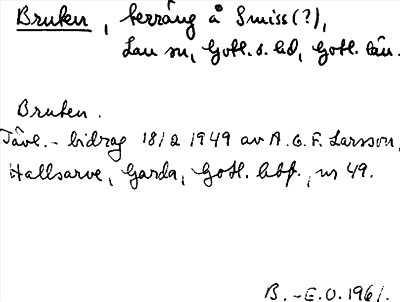 Bruken, terräng å Smiss(?),
Lau sn, Gotl. s. hd, Gotl. län.
Bruken.
Tävl.-bidrag 18/2 1949 av A. G. F. Larsson,
Hallsarve, Garda, Gotl. hbf., nr 49.
B.-E.O. 1961.